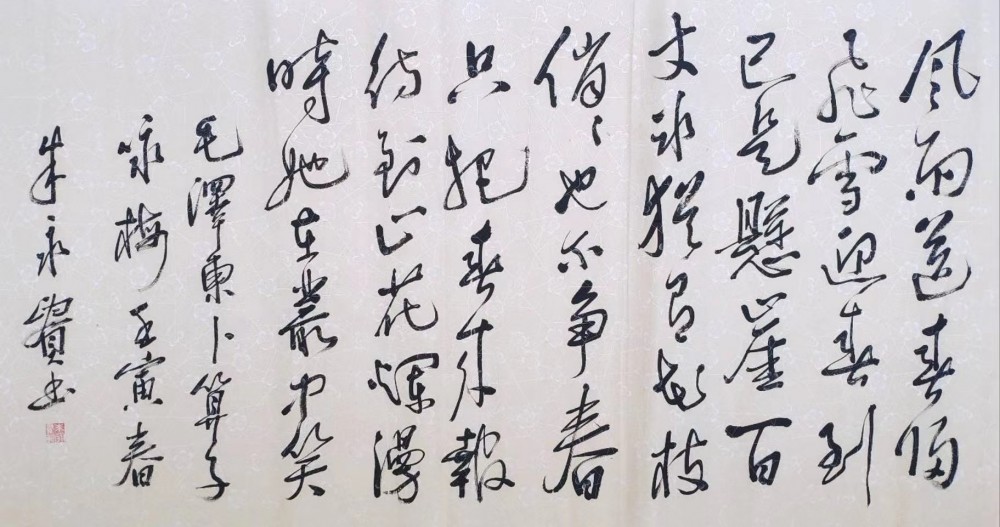 风雨送春归
飛雪迎春到
已是懸崖百
丈冰猶有花枝
俏俏也不争春
只把春来報
待到山花爛漫
時她在叢中笑
毛澤東卜算子
咏梅壬寅春
朱永書